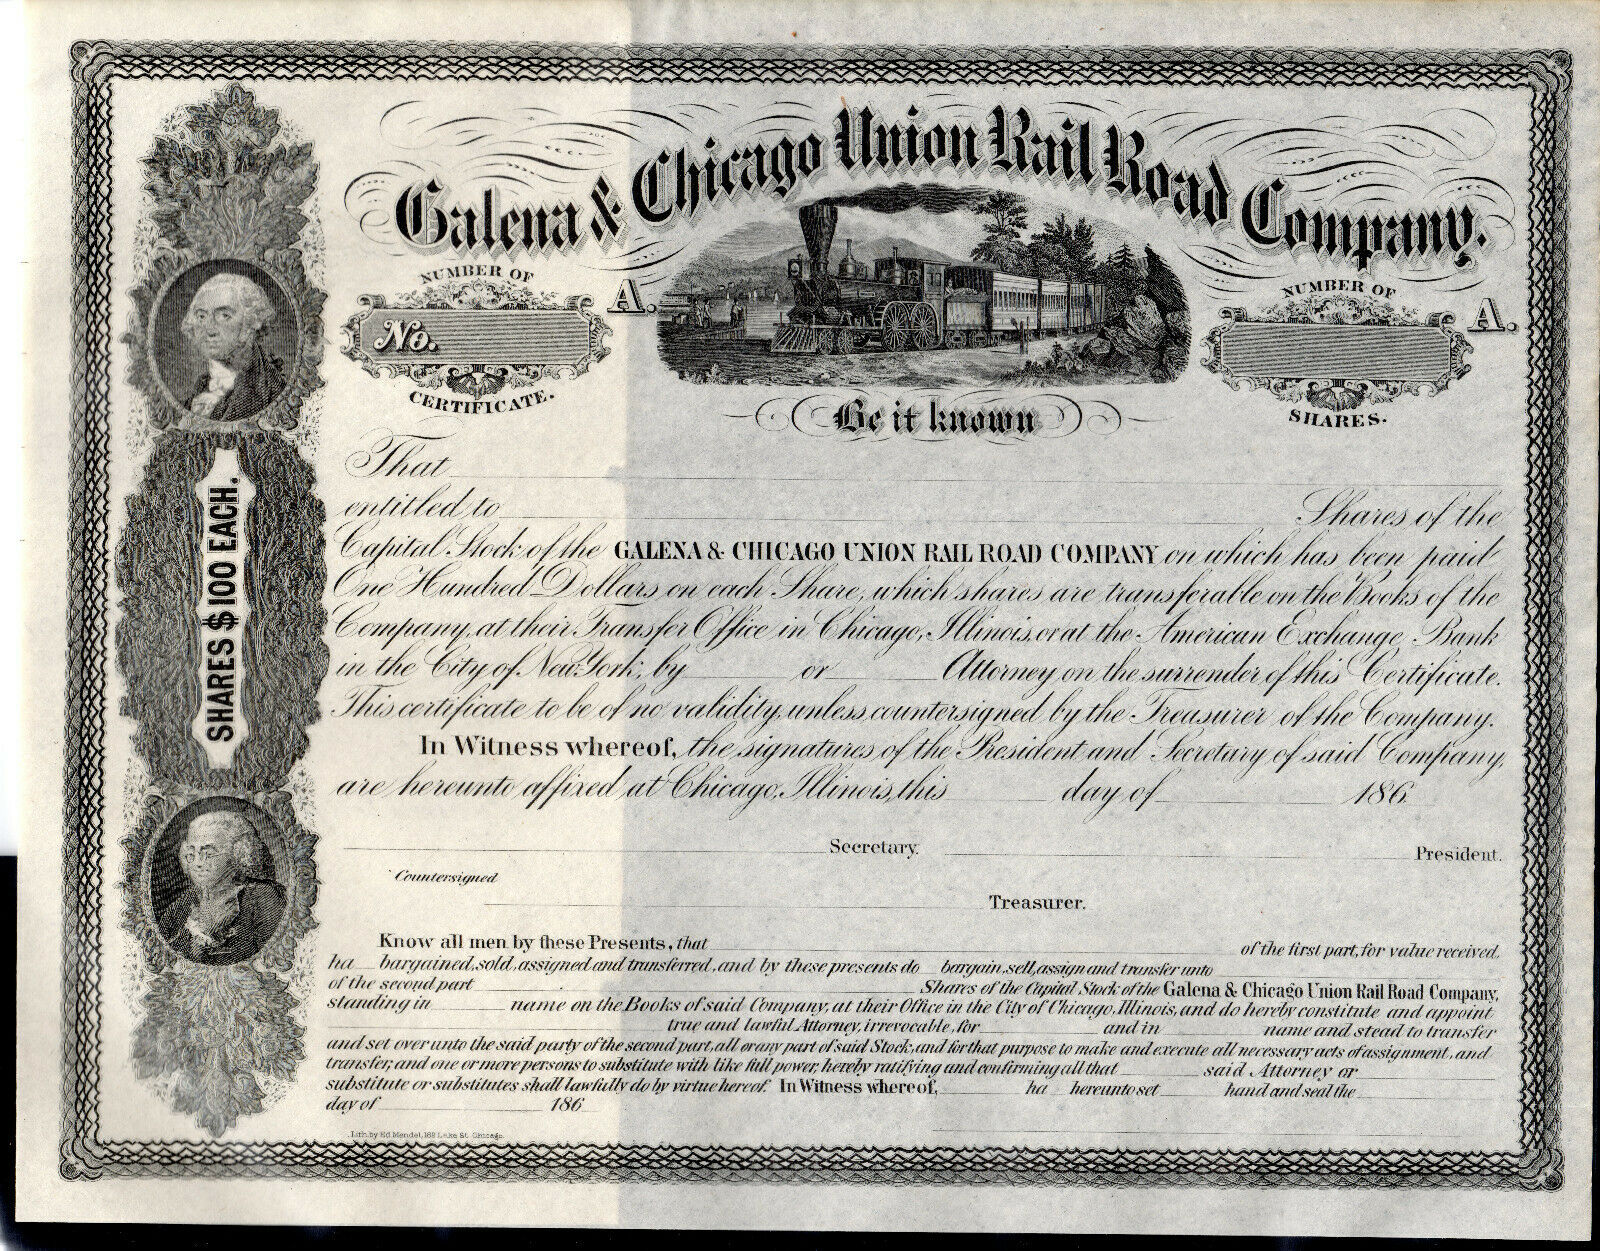 Galena & Chicago Union Rail Road Company.
NUMBER OF
A.
No.
CERTIFICATE.
NUMBER OF
A.
SHARES.
Be it known
SHARES $100 EACH.
That
entitled to Shares of the
Capital Stock of the GALENA & CHICAGO UNION RAIL ROAD COMPANY on which has been paid
One Hundred Dollars on each Share, which shares are transferable on the Books of the
Company, at their Transfer Office in Chicago, Illinois, or at the American Exchange Bank
in the City of New York, by or Attorney on the surrender of this Certificate.
This certificate to be of no validity, unless countersigned by the Treasurer of the Company.
In Witness whereof, the signatures of the President and Secretary of said Company,
are hereunto affixed at Chicago, Illinois, this day of 186
Secretary. President.
Countersigned
Treasurer.
Know all men by these Presents, that of the first part, for value received,
ha bargained, sold, assigned and transferred, and by these presents do bargain, sell, assign and transfer unto
of the second part Shares of the Capital Stock of the Galena & Chicago Union Rail Road Company,
standing in name on the Books of said Company, at their Office in the City of Chicago, Illinois, and do hereby constitute and appoint
true and lawful Attorney, irrevocable, for and in name and stead to transfer
and set over unto the said party of the second part, all or any part of said Stock, and for that purpose to make and execute all necessary acts of assignment, and
transfer, and one or more persons to substitute with like full power, hereby ratifying and confirming all that said Attorney or
substitute or substitutes shall lawfully do by virtue hereof. In Witness whereof, ha hereunto set hand and seal the
day of 186
Lith. by Ed Mendel, 162 Lake St. Chicago.